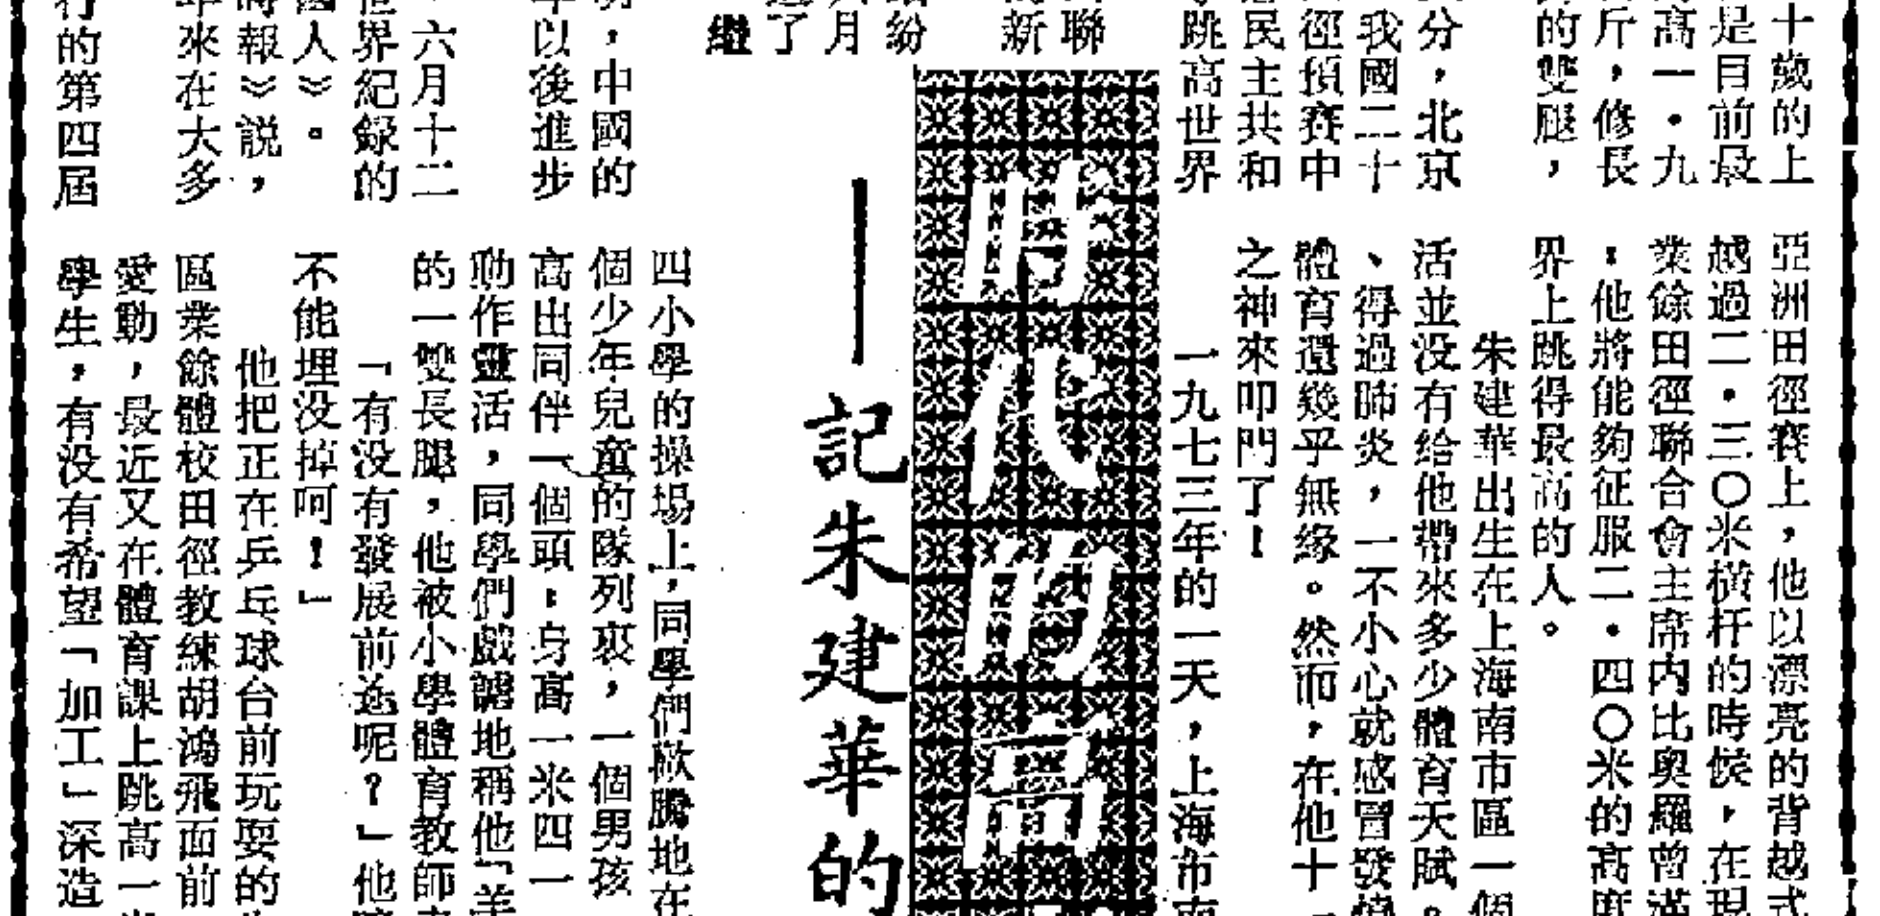 十歲的上
是目前最
高一·九
斤，修長
的雙腿，
分，北京
我國二十
徑預賽中
民主共和
跳高世界
聯
新
紛
月
了
繼
，中國的
以後進步
六月十二
世界紀録的
國人》。
時報》説，
年來在大多
行的第四屆
時代的高
——記朱建華的
亞洲田徑賽上，他以漂亮的背越式
越過二·三〇米橫杆的時候，在現
業餘田徑聯合會主席内比奥羅曾滿
：他將能夠征服二·四〇米的高度
界上跳得最高的人。
朱建華出生在上海南市區一個
活並没有给他帶來多少體育天賦。
、得過肺炎，一不小心就感冒發燒
體育還幾乎無緣。然而，在他十
之神來叩門了！
一九七三年的一天，上海市南
四小學的操場上，同學們歡騰地在
個少年兒童的隊列裏，一個男孩
高出同伴一個頭：身高一米四一
動作靈活，同學們戲謔地稱他「羊
的一雙長腿，他被小學體育教師
「有没有發展前途呢？」他
不能埋没掉呵！」
他把正在乒乓球台前玩耍的
區業餘體校田徑教練胡鴻飛面前
愛動，最近又在體育課上跳高一
學生，有没有希望「加工」深造